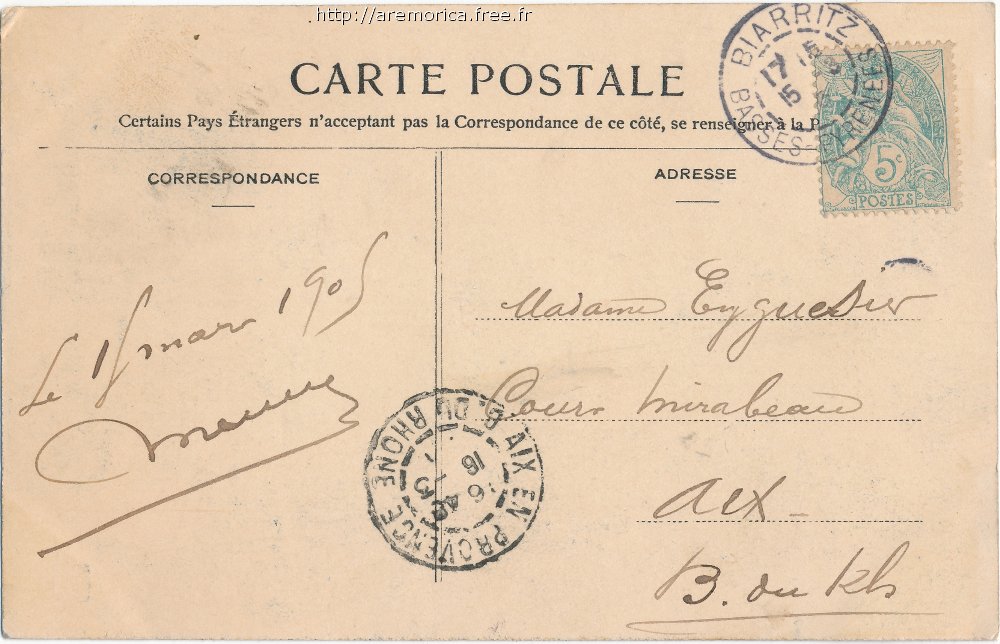 http://aremorica.free.fr
CARTE POSTALE
Certains Pays Étrangers n'acceptant pas la Correspondance de ce côté, se renseigner à la P
CORRESPONDANCE
ADRESSE
BIARRITZ
BASSES-PYRENEES
17
15
5c
POSTES
Le 15 mars 1905
Madame Eyguesier
Cours Mirabeau
Aix-
B. du Rh
AIX EN PROVENCE
B. DU RHONE
16